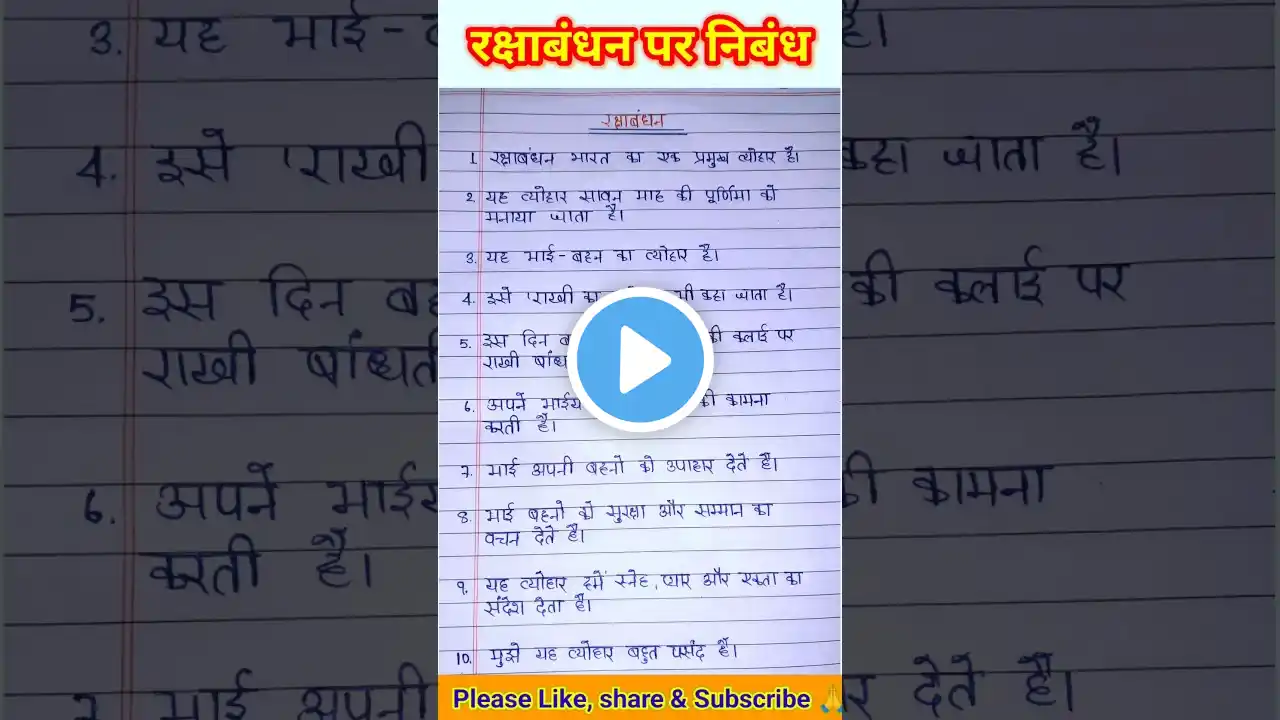 रक्षाबंधन पर निबंध
रक्षाबंधन
1. रक्षाबंधन भारत का एक प्रमुख त्योहार है।
2. यह त्योहार सावन माह की पूर्णिमा को
मनाया जाता है।
3. यह भाई-बहन का त्योहार है।
4. इसे 'राखी का कहा जाता है।
5. इस दिन की कलाई पर
राखी
6. अपने की कामना
करती है।
7. भाई अपनी बहनो को उपाहार देते है।
8. भाई बहनो को सुरक्षा और सम्मान का
वचन देते है।
9. यह त्योहार हमें स्नेह, प्यार और एकता का
संदेश देता है।
10. मुझे यह त्योहार बहुत पसंद है।
Please Like, share & Subscribe 🙏
3. यह भाई- है।
4. इसे 'राखी कहा जाता है।
5. इस दिन की कलाई पर
राखी
6. अपने कामना
करती है।
भाई अपनी देते है।